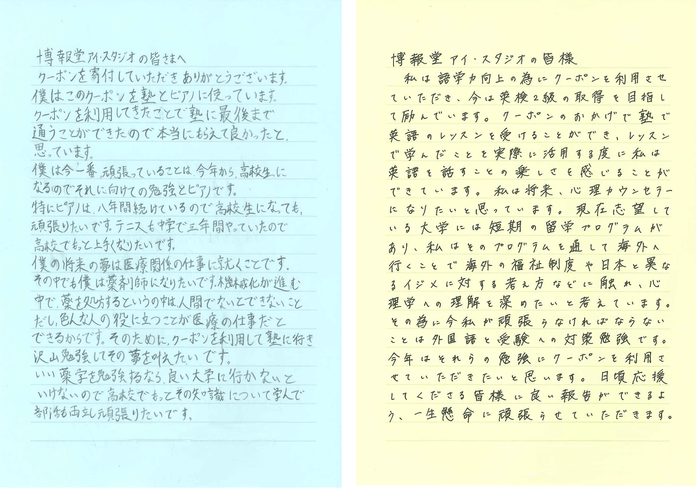 博報堂アイ・スタジオの皆さまへ
クーポンを寄付していただきありがとうございます。
僕はこのクーポンを塾とピアノに使っています。
クーポンを利用してきたことで塾に最後まで
通うことができたので本当にもらえて良かったと、
思っています。
僕は今一番、頑張っていることは今年から、高校生に
なるのでそれに向けての勉強とピアノです。
特にピアノは、八年間続けているので高校生になっても、
頑張りたいです。テニスも中学で三年間やっていたので
高校でもっと上手くなりたいです。
僕の将来の夢は医療関係の仕事に就くことです。
その中でも僕は薬剤師になりたいです。機械化が進む
中で、薬を処方するというの中は人間でないとできないこと
だし、色んな人の役に立つことが医療の仕事だと
できるからです。そのために、クーポンを利用して塾に行き
沢山勉強してその夢を叶えたいです。
いい薬学を勉強するなら、良い大学に行かないと
いけないので高校でもっとその知識について学んで
部活も両立し頑張りたいです。
博報堂アイ・スタジオの皆様
私は語学力向上の為にクーポンを利用させ
ていただき、今は英検2級の取得を目指し
て励んでいます。クーポンのおかげで塾で
英語のレッスンを受けることができ、レッスン
で学んだことを実際に活用する度に私は
英語を話すことの楽しさを感じることが
できています。私は将来、心理カウンセラー
になりたいと思っています。現在志望して
いる大学には短期の留学プログラムが
あり、私はそのプログラムを通して海外へ
行くことで海外の福祉制度や日本と異な
るイジメに対する考え方などに触れ、心
理学への理解を深めたいと考えています。
その為に今私が頑張らなければならない
ことは外国語と受験への対策勉強です。
今年はそれらの勉強にクーポンを利用さ
せていただきたいと思います。日頃応援
してくださる皆様に良い報告ができるよ
う、一生懸命に頑張らせていただきます。